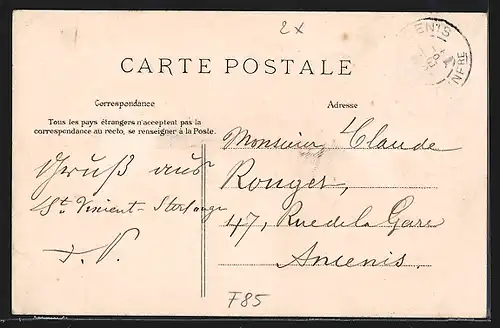 2x
CARTE POSTALE
Correspondance
Adresse
Tous les pays étrangers n'acceptent pas la
correspondance au recto, se renseigner à la Poste.
Monsieur Claude
Gruß aus
Rouger,
St. Vincent-Sterlange
47, Rue de la Gare
J. P.
Ancenis.
F85